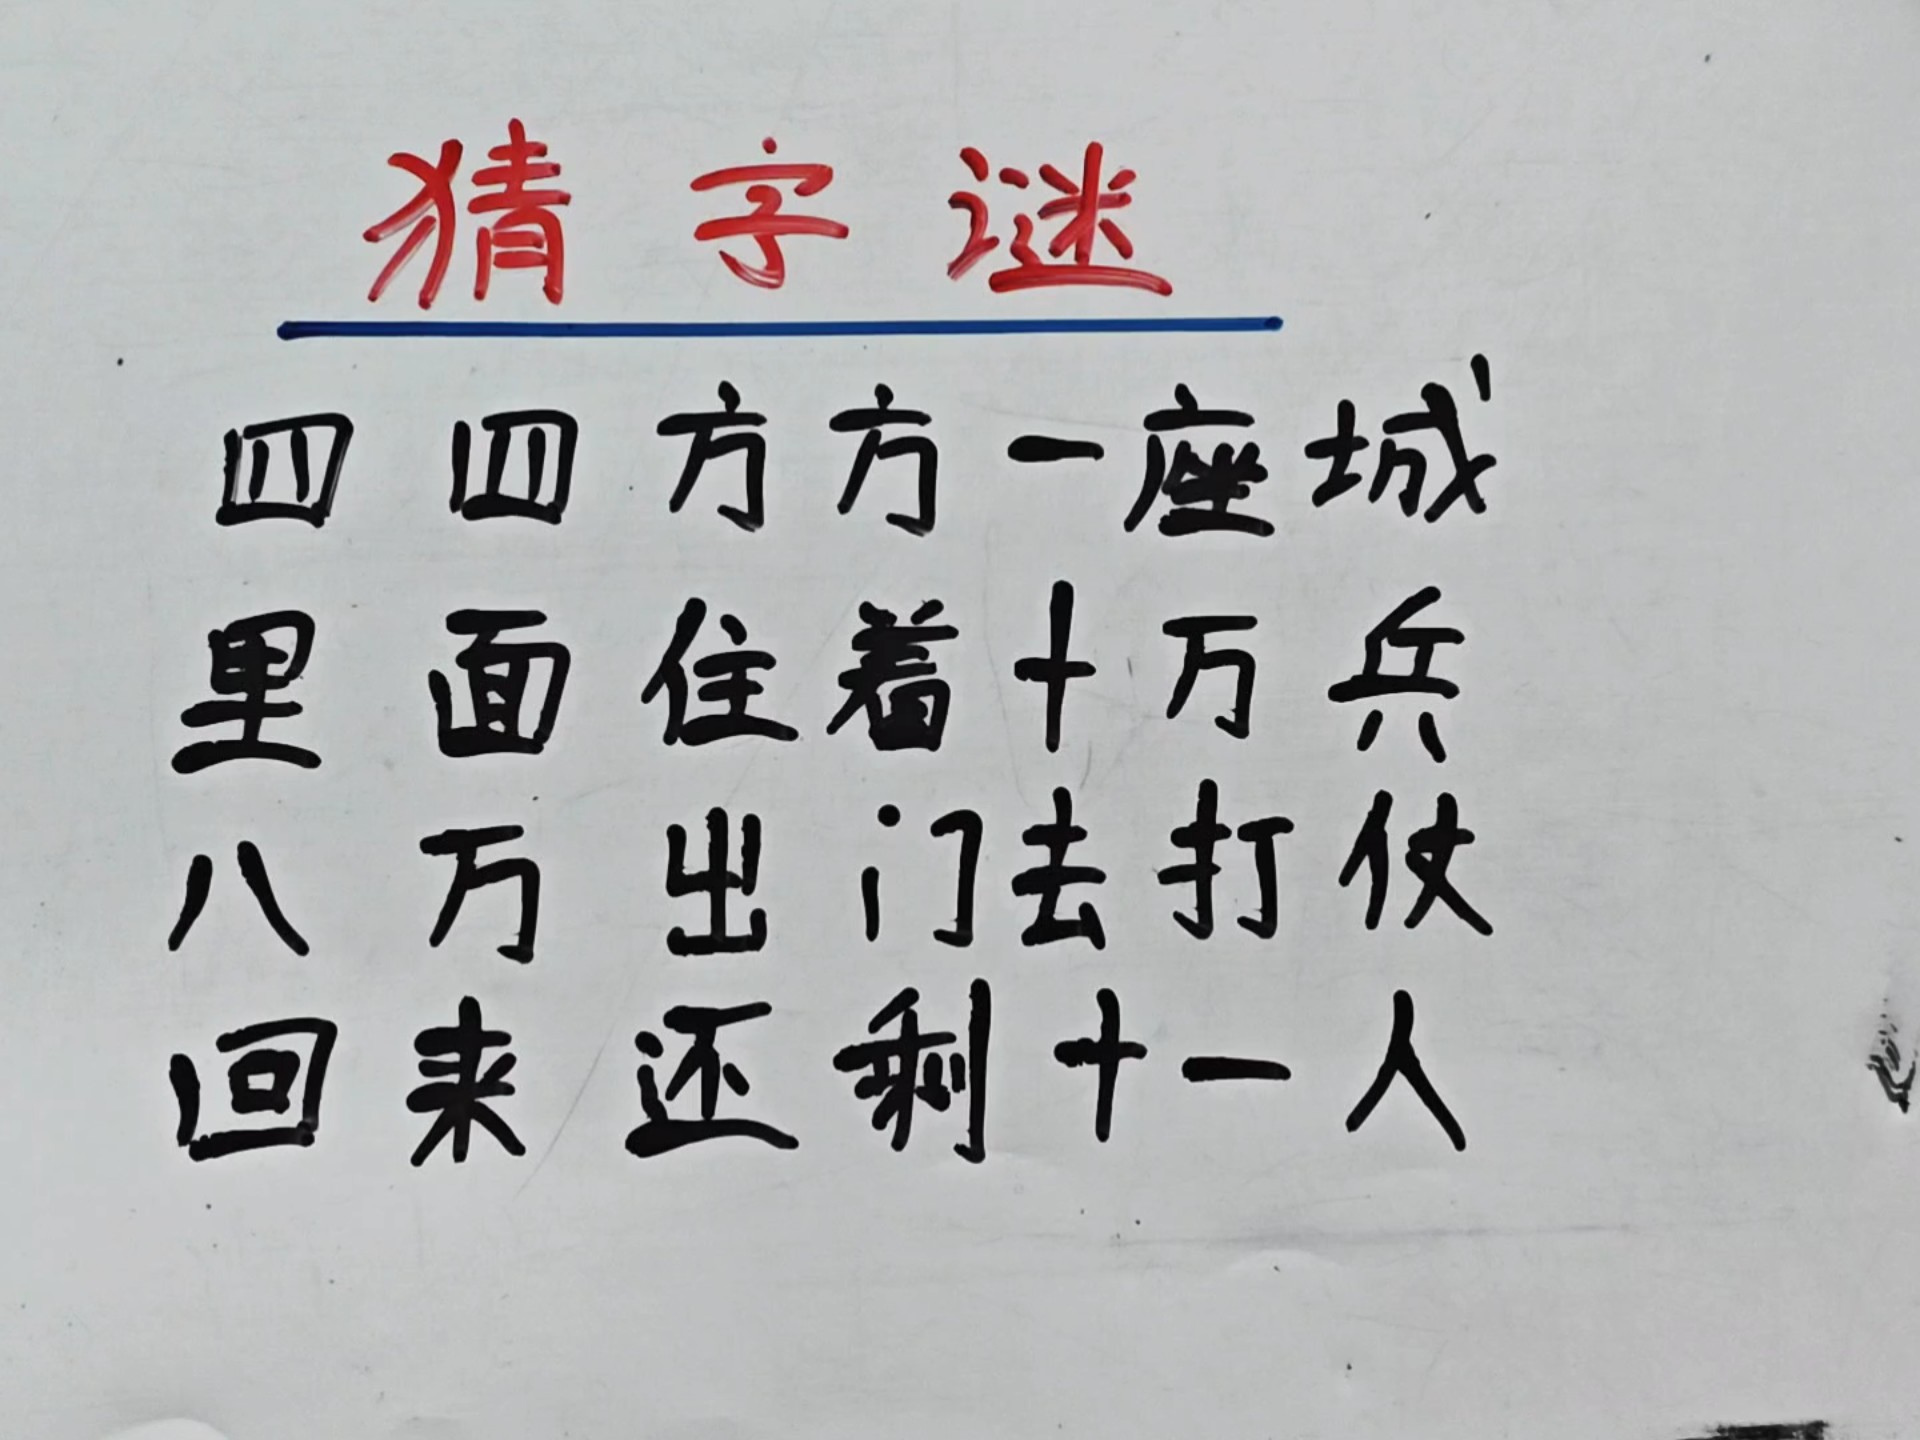 猜字谜
四四方方一座城
里面住着十万兵
八万出门去打仗
回来还剩十一人